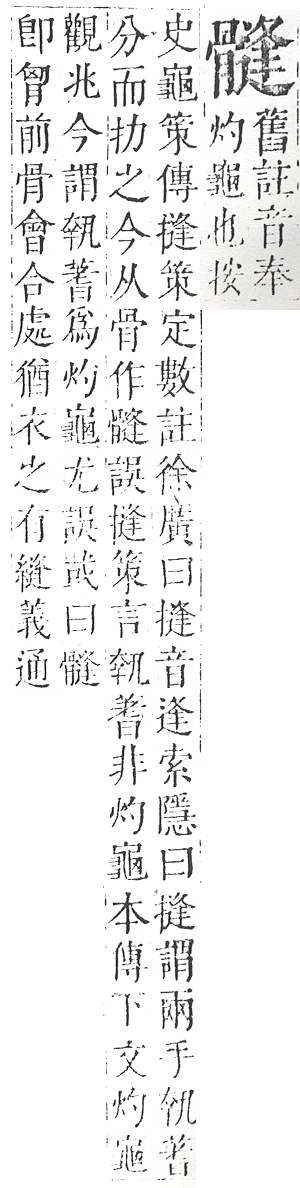 髼舊註音奉
灼龜也按
史龜策傳摓策定數註徐廣曰摓音逢索隱曰摓謂兩手執蓍
分而扐之今从骨作髼誤摓策言執蓍非灼龜本傳下文灼龜
觀兆今謂執蓍爲灼龜尤誤或曰髼
卽胷前骨會合處猶衣之有縫義通